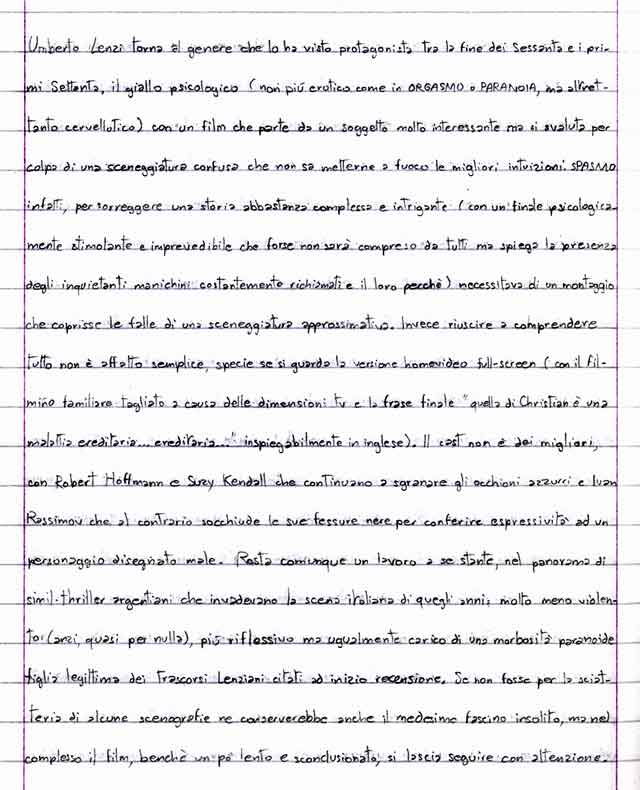 Umberto Lenzi torna al genere che lo ha visto protagonista tra la fine dei Sessanta e i pri-
mi Settanta, il giallo psicologico (non più erotico come in ORGASMO o PARANOIA, ma altret-
tanto cervellotico) con un film che parte da un soggetto molto interessante ma si svaluta per
colpa di una sceneggiatura confusa che non sa metterne a fuoco le migliori intuizioni. SPASMO
infatti, per sorreggere una storia abbastanza complessa e intrigante (con un finale psicologica-
mente stimolante e imprevedibile che forse non sarà compreso da tutti ma spiega la presenza
degli inquietanti manichini costantemente richiamati e il loro perchè) necessitava di un montaggio
che coprisse le falle di una sceneggiatura approssimativa. Invece riuscire a comprendere
tutto non è affatto semplice, specie se si guarda la versione homevideo full-screen (con il fil-
mino familiare tagliato a causa delle dimensioni tv e la frase finale "quella di Christian è una
malattia ereditaria... ereditaria..." inspiegabilmente in inglese). Il cast non è dei migliori,
con Robert Hoffmann e Suzy Kendall che continuano a sgranare gli occhioni azzurri e Ivan
Rassimov che al contrario socchiude le sue fessure nere per conferire espressività ad un
personaggio disegnato male. Resta comunque un lavoro a se stante, nel panorama di
simil-thriller argentiani che invadevano la scena italiana di quegli anni; molto meno violen-
to (anzi, quasi per nulla), più riflessivo ma ugualmente carico di una morbosità paranoide
figlia legittima dei trascorsi Lenziani citati ad inizio recensione. Se non fosse per la sciat-
teria di alcune scenografie ne conserverebbe anche il medesimo fascino insolito, ma nel
complesso il film, benchè un po' lento e sconclusionato, si lascia seguire con attenzione.